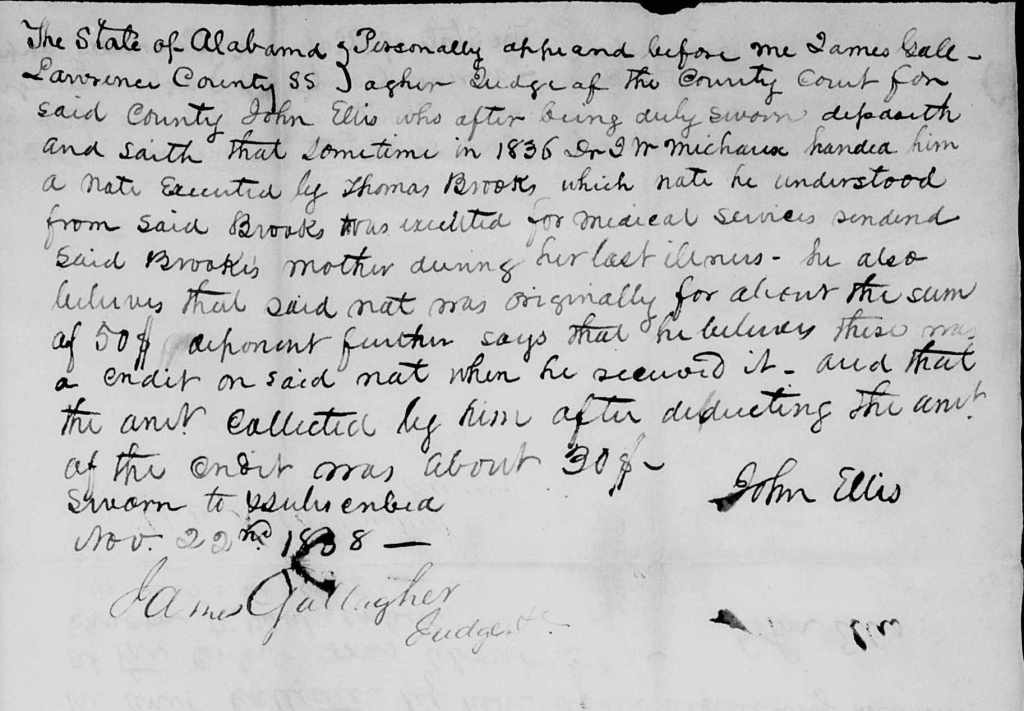 The State of Alabama } Personally appeard before me James Gall-
Lawrence County SS } agher Judge of the County Court for
said County John Ellis who after being duly sworn deposeth
and saith that sometime in 1836 Dr J W Michaux handed him
a note Executed by Thomas Brooks, which note he understood
from said Brooks was executed for medical services renderd
said Brooks's mother during her last illness - he also
believes that said not was originally for about the sum
of 50$ deponent further says that he believes there was
a credit on said not when he received it - and that
the amt. collected by him after deducting the amt.
of the credit was about 30$ -
Sworn to & subscribed
John Ellis
Nov. 22nd. 1838 —
James Gallagher
Judge &c